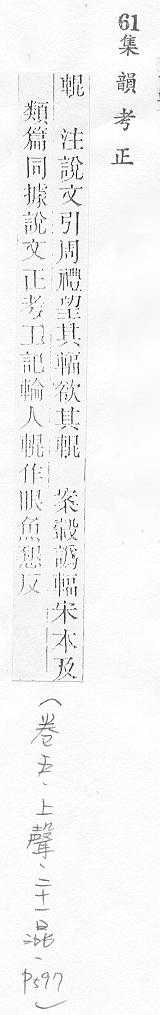 61集韻考正
輥 注說文引周禮望其輻欲其輥 案轂譌輻宋本及
類篇同據說文正考工記輪人輥作眼魚懇反
(卷五、上聲、二十一混、P597)